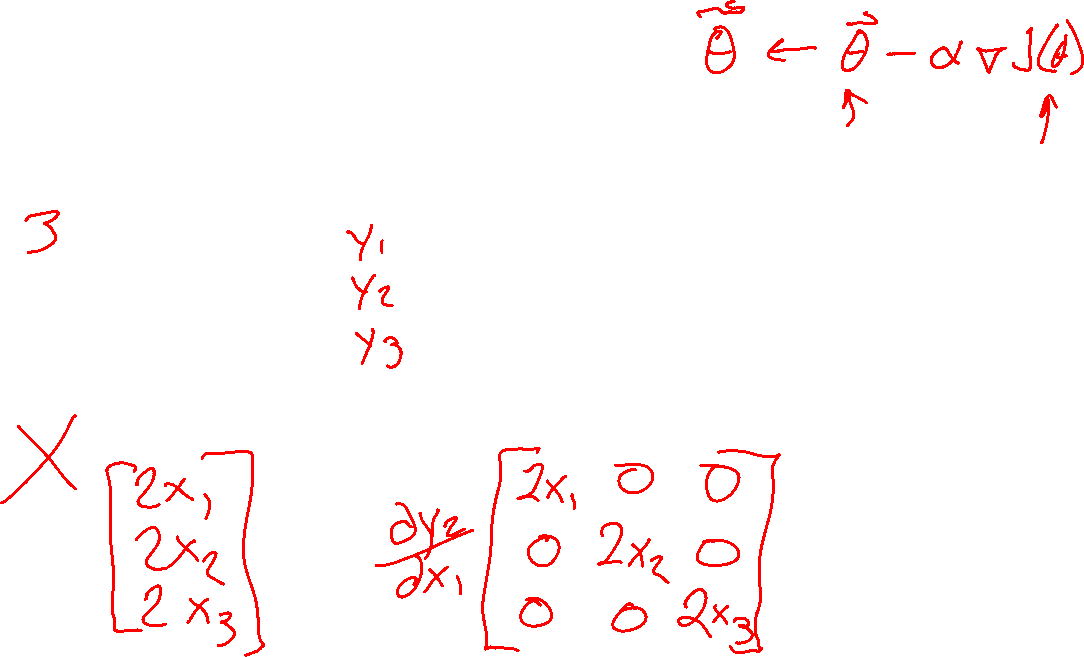 θ⃗ ← θ⃗ - α ∇ J(θ)
3
y₁
y₂
y₃
X
[2x₁
2x₂
2x₃]
∂y₂/∂x₁
[2x₁ 0 0
0 2x₂ 0
0 0 2x₃]